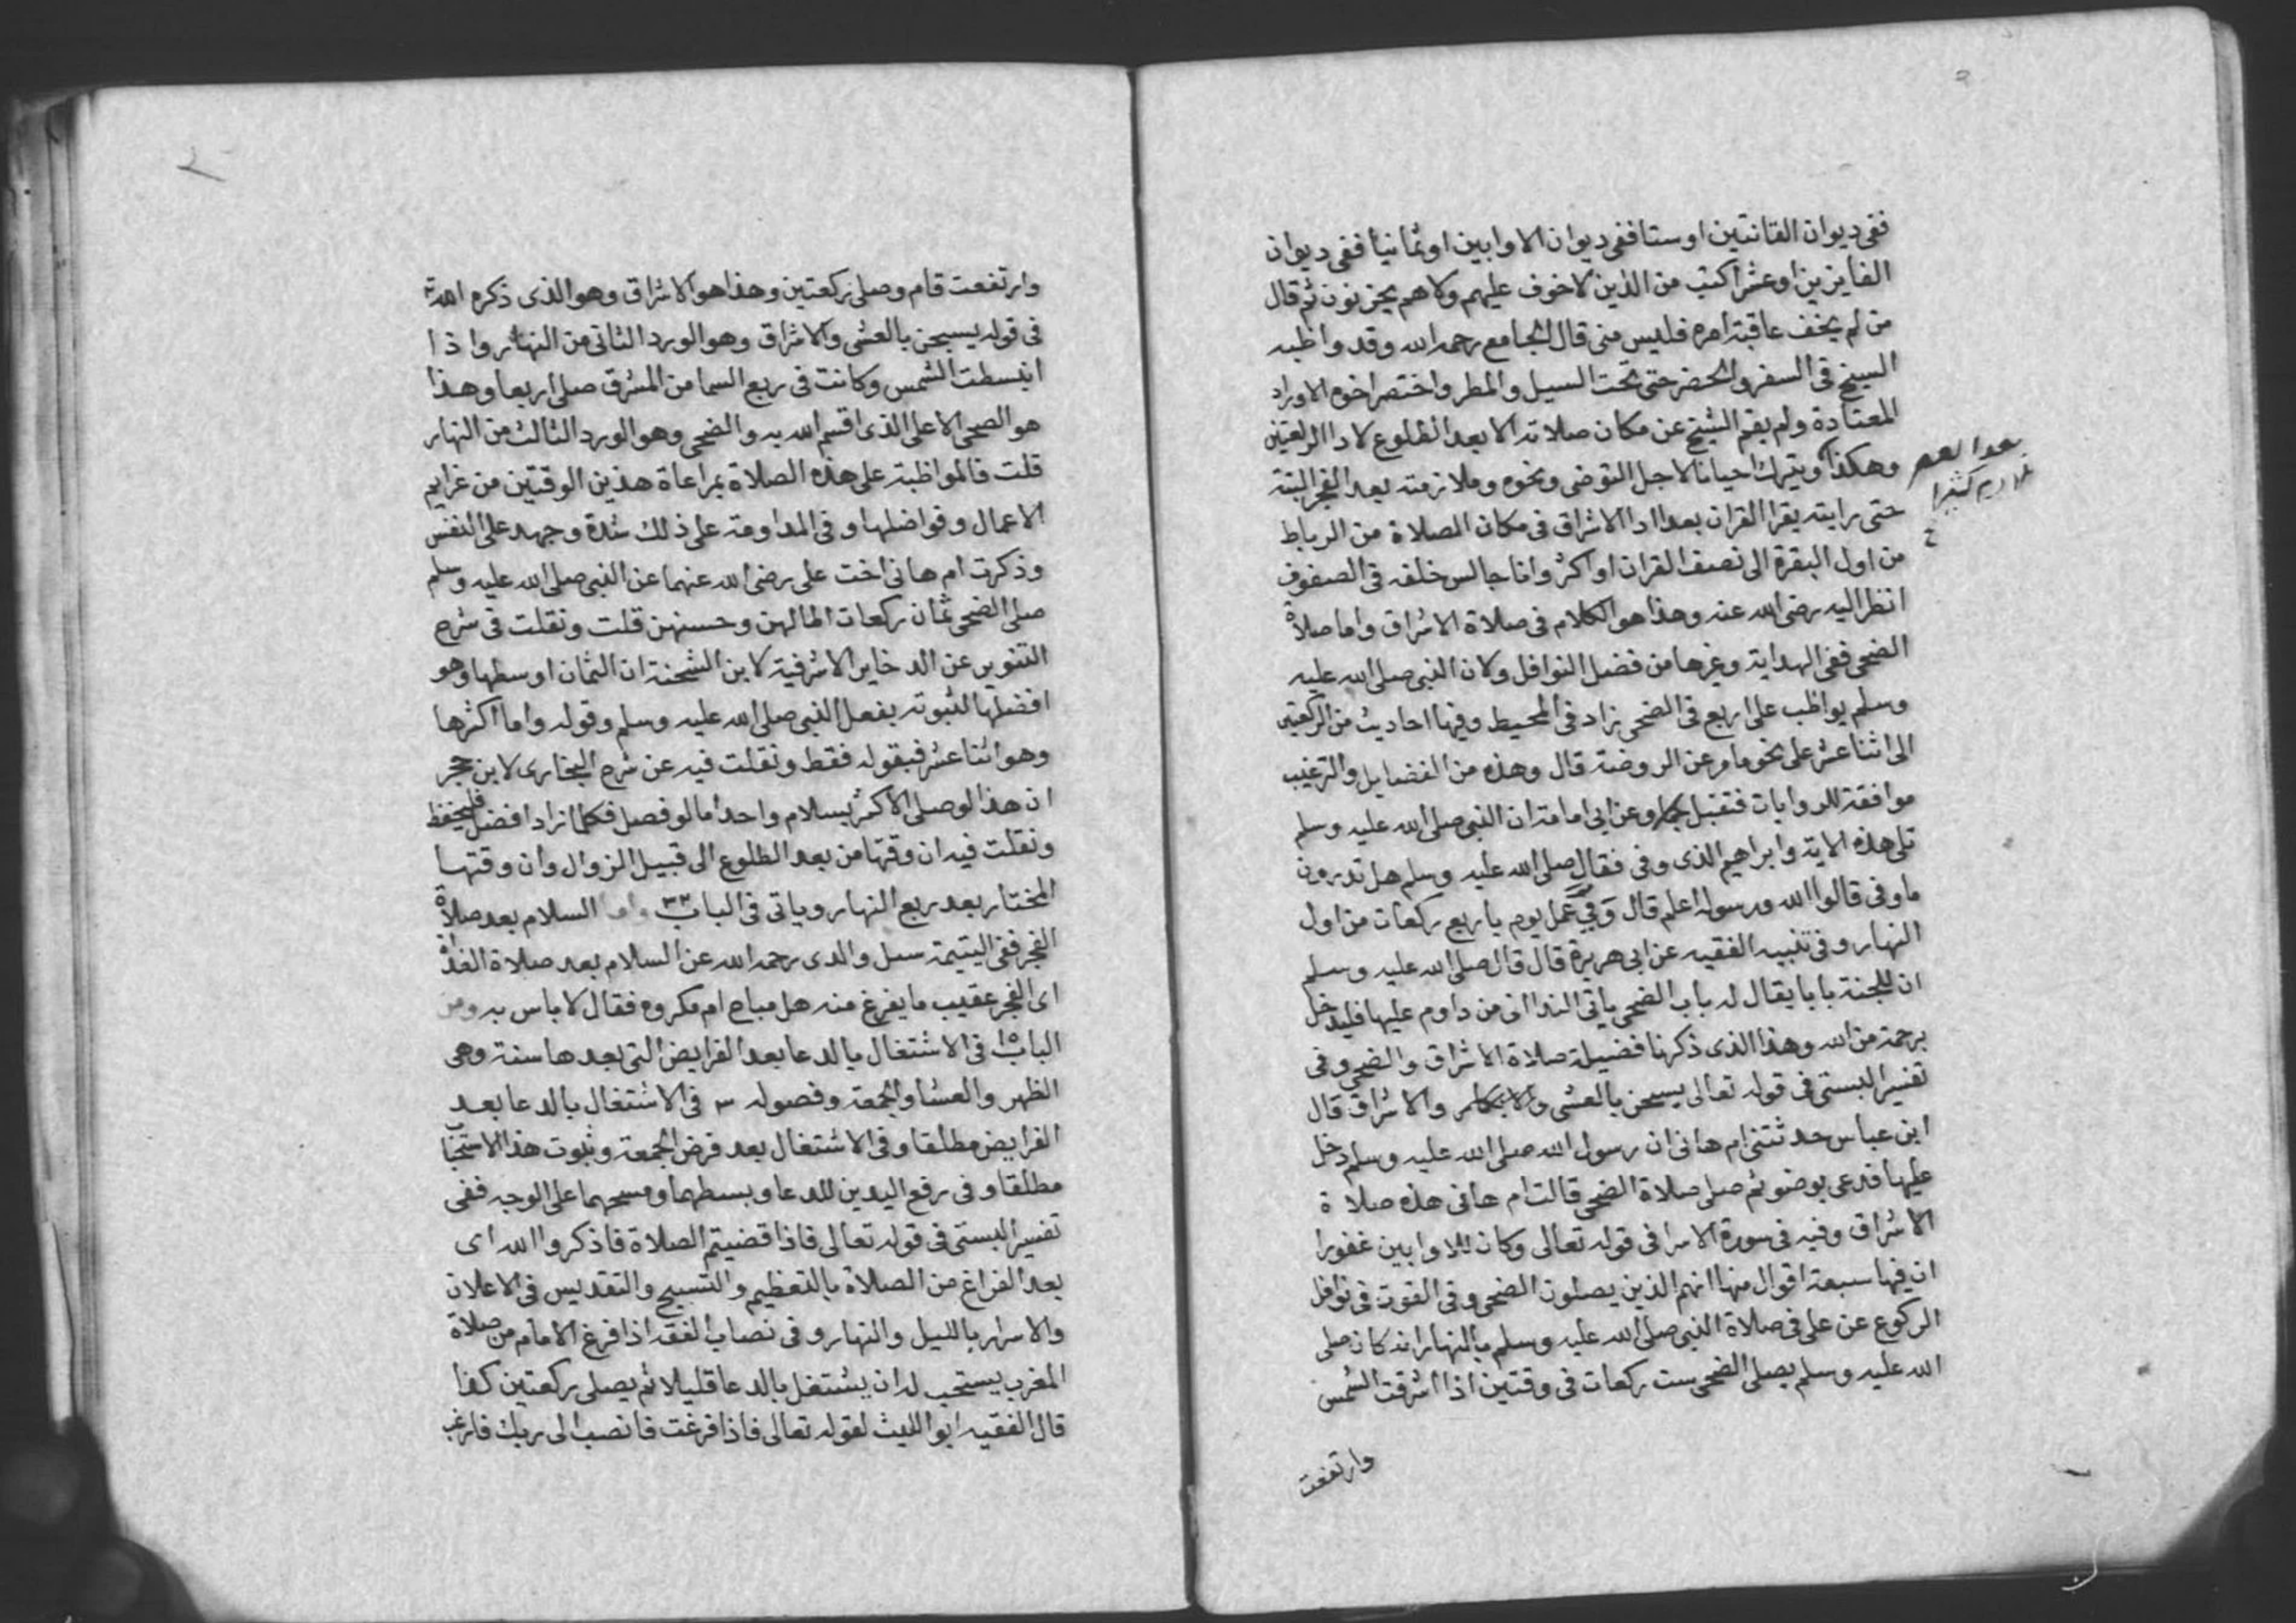 ففى ديوان القانتين او ستا ففى ديوان الاوابين او ثمانيا ففى ديوان
الفايزين او عشرا كتب من الذين لا خوف عليهم ولا هم يحزنون ثم قال
من لم يخف عاقبة امره فليس منى قال الجامع رحمه الله وقد واظبه
الشيخ فى السفر والحضر حتى تحت السيل والمطر واختصر اخوه الاوراد
المعتادة ولم يقم الشيخ عن مكان صلاته الا بعد الطلوع لادا الركعتين
وهكذا ويترك احيانا لاجل التوضى ونحوه وملازمته بعد الفجر البتة
بعد العصر
كثيرا
حتى رايته يقرا القران بعد ادا الاشراق فى مكان الصلاة من الرباط
من اول البقرة الى نصف القران او اكثر وانا جالس خلفه فى الصفوف
انظر اليه رضى الله عنه وهذا هو الكلام فى صلاة الاشراق واما صلاة
الضحى ففى الهداية وغيرها من فضل النوافل وكان النبى صلى الله عليه
وسلم يواظب على اربع فى الضحى زاد فى المحيط وفيها احاديث من الركعتين
الى اثنا عشر على نحو ما مر عن الروضة قال وهذه من الفضايل والترغيب
موافقة للروايات فتقبل وعن ابى امامة ان النبى صلى الله عليه وسلم
تلى هذه الاية وابراهيم الذى وفى فقال صلى الله عليه وسلم هل تدرون
ما وفى قالوا الله ورسوله اعلم قال وَفّى عَمل يوم باربع ركعات من اول
النهار وفى تنبيه الفقيه عن ابى هريرة قال قال صلى الله عليه وسلم
ان للجنة بابا يقال له باب الضحى ياتى الندا انى من داوم عليها فليدخل
برحمة من الله وهذا الذى ذكرنا فضيلة صلاة الاشراق والضحى وفى
تفسير البستى فى قوله تعالى يسبحن بالعشى والاشراق قال
ابن عباس حدثتنى ام هانى ان رسول الله صلى الله عليه وسلم دخل
عليها فدعى بوضو ثم صلى صلاة الضحى قالت ام هانى هذه صلاة
الاشراق وفيه فى سورة الاسرا فى قوله تعالى وكان للاوابين غفورا
ان فيها سبعة اقوال منها انهم الذين يصلون الضحى وفى القوت فى نوافل
الركوع عن على فى صلاة النبى صلى الله عليه وسلم بالنهار انه كان صلى
الله عليه وسلم يصلى الضحى ست ركعات فى وقتين اذا اشرقت الشمس
وارتفعت
وارتفعت قام وصلى ركعتين وهذا هو الاشراق وهو الذى ذكره الله
فى قوله يسبحن بالعشى والاشراق وهو الورد الثانى من النهار واذا
انبسطت الشمس وكانت فى ربع السما من المشرق صلى اربعا وهذا
هو الضحى الاعلى الذى اقسم الله به والضحى وهو الورد الثالث من النهار
قلت فالمواظبة على هذه الصلاة بمراعاة هذين الوقتين من غرايم
الاعمال وفواضلها وفى المداومة على ذلك شدة وجهد على النفس
وذكرت ام هانى اخت على رضى الله عنهما عن النبى صلى الله عليه وسلم
صلى الضحى ثمان ركعات اطالهن وحسنهن قلت ونقلت فى شرح
التنوير عن الدخاير الاشرفية لابن الشحنة ان الثمان اوسطها وهو
افضلها لثبوته بفعل النبى صلى الله عليه وسلم وقوله واما اكثرها
وهو اثنا عشر فبقوله فقط ونقلت فيه عن شرح البخارى لابن حجر
ان هذا لو صلى الاكثر بسلام واحد اما لو فصل فكلما زاد افضل فليحفظ
ونقلت فيه ان وقتها من بعد الطلوع الى قبيل الزوال وان وقتها
المختار بعد ربع النهار وياتى فى الباب ٣٣ واما السلام بعد صلاة
الفجر ففى اليتيمة سىل والدى رحمه الله عن السلام بعد صلاة الغداة
اى الفجر عقيب ما يفرغ منه هل مباح ام مكروه فقال لا باس به ومن
الباب ١٥ فى الاشتغال بالدعا بعد الفرايض التى بعدها سنة وهى
الظهر والعشا والجمعة وفصوله ٣ فى الاشتغال بالدعا بعد
الفرايض مطلقا وفى الاشتغال بعد فرض الجمعة وثبوت هذا الاستحبا
مطلقا وفى رفع اليدين للدعا وبسطهما ومسحهما على الوجه ففى
تفسير البستى فى قوله تعالى فاذا قضيتم الصلاة فاذكروا الله اى
بعد الفراغ من الصلاة بالتعظيم والتسبيح والتقديس فى الاعلان
والاسرار بالليل والنهار وفى نصاب الفقه اذا فرغ الامام من صلاة
المغرب يستحب له ان يشتغل بالدعا قليلا ثم يصلى ركعتين كذا
قال الفقيه ابو الليث لقوله تعالى فاذا فرغت فانصب الى ربك فارغب